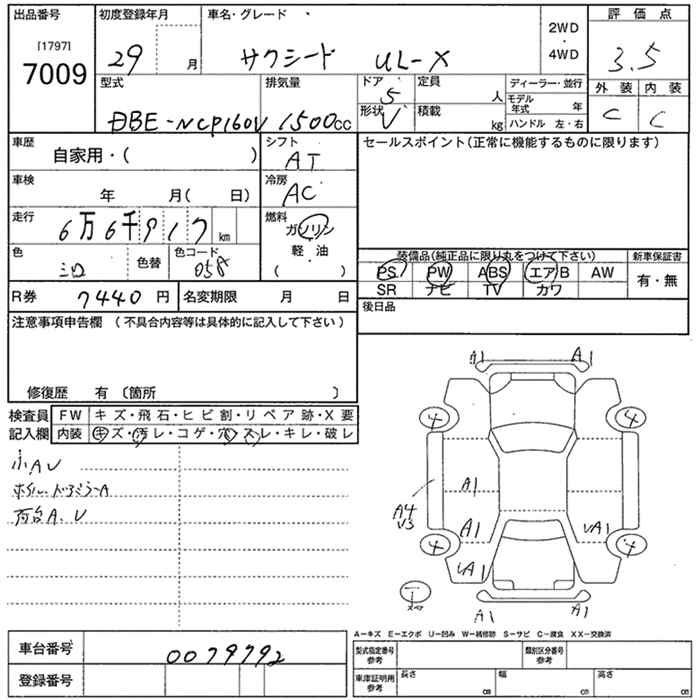 出品番号
[1797]
7009
初度登録年月
29 月
車名・グレード
サクシード UL-X
2WD
・
4WD
評価点
3.5
外装 内装
C C
型式
DBE-NCP160V
排気量
1500cc
ドア
5
形状
V
定員
人
積載
kg
ディーラー・並行
モデル年式 年
ハンドル 左・右
車歴
自家用・( )
シフト
AT
車検
年 月( 日)
冷房
AC
走行
6万6千917km
燃料
ガソリン
・
軽油
・
( )
色
シロ
色替
色コード
058
R券 7440円
名変期限 月 日
セールスポイント(正常に機能するものに限ります)
装備品(純正品に限り丸をつけて下さい)
PS PW ABS エアB AW
SR ナビ TV カワ
新車保証書
有・無
後日品
注意事項申告欄 (不具合内容等は具体的に記入して下さい)
修復歴 有 〔箇所 〕
検査員記入欄
FW キズ・飛石・ヒビ割・リペア跡・X要
内装 キズ・汚レ・コゲ・穴・スレ・キレ・破レ
小AU
荷台A、U
A1 A1
4 4
A1
A4
U3
A1 UA1
4 4
UA1
T
スペア
A1 A1
A-キズ E-エクボ U-凹み W-補修跡 S-サビ C-腐食 XX-交換済
車台番号 0079792
登録番号
型式指定番号参考
類別区分番号参考
車庫証明用参考
長さ cm
幅 cm
高さ cm